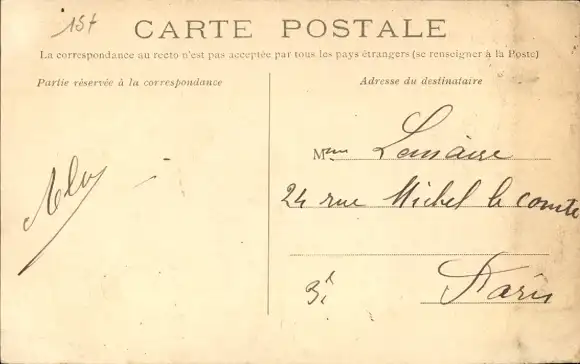 15t
CARTE POSTALE
La correspondance au recto n'est pas acceptée par tous les pays étrangers (se renseigner à la Poste)
Partie réservée à la correspondance
Adresse du destinataire
Mme Lemaire
24 rue Michel le comte
3e Paris